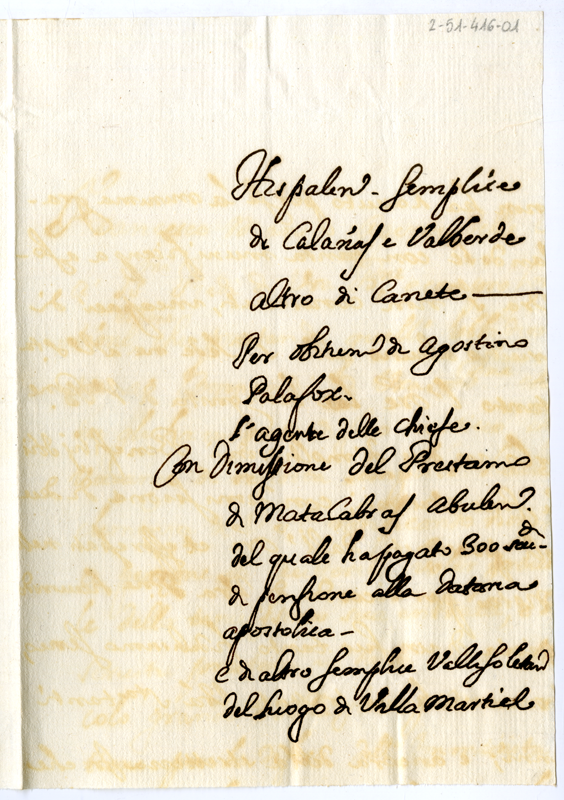 2-51-416-01
Hispalen. Semplice
di Calañas e Valverde
altro di Canete
Per obitum di Agostino
Palafox.
L'agente delle chiese.
Con Dimissione del Prestamo
di MataCabras Abulen.
del quale ha pagato 300 scudi
di pensione alla Dataria
apostolica -
e di altro semplice Vallesoletan
del luogo di Villa Martiel